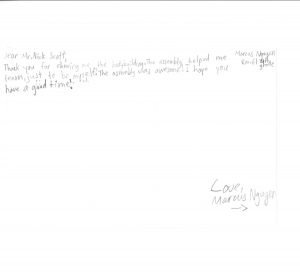 Dear Mr. Nick Scott,
Thank you for showing me the bodybuilding. The assembly helped me
learn, just to be myself. The assembly was awesome. I hope you
have a good time!
Marcus Nguyen
grade
Love,
Marcus Nguyen
→